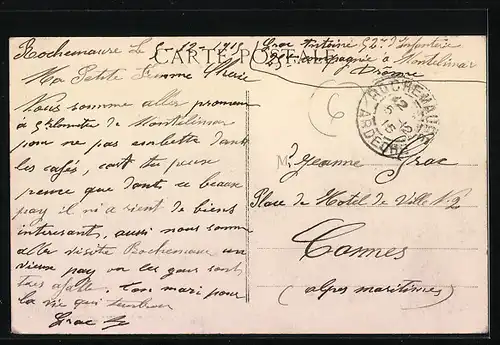 CARTE POSTALE
Rochemaure le 5-12-1915
Ma Petite Femme Cherie
Nous somme aller promener
à 5 kilometre de Montelimar
pour ne pas embette dant
les cafés, cart tu peuse
pence que dants ce beaux
pay il ni a rient de biens
interesants, aussi nous somme
aller visitre Rochemaure un
vieux pay ou les gens sonts
tres afable. Ton mari pour
la vie qui
Grac
Grac Antoine 52e d'infanterie
25e Compagnie à Montelimar
Drome
ROCHEMAURE
ARDECHE
M Jeanne Grac
Place de Hotel de Ville N. 2
Cannes
(alpes maritimes)